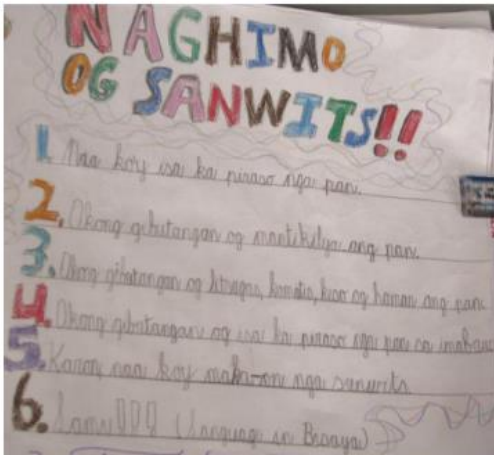 NAGHIMO
OG SANWITS!!
1. Naa koy isa ka piraso nga pan.
2. Akong gibutangan og mantikilya ang pan.
3. Akong gibutangan og litsugas, kamatis, keso og haman ang pan.
4. Akong gibutangan og isa ka piraso nga pan sa imabaw
5. Karon, naa koy makaon nga sanwits.
6. Lami!!! (Language in Bisaya)